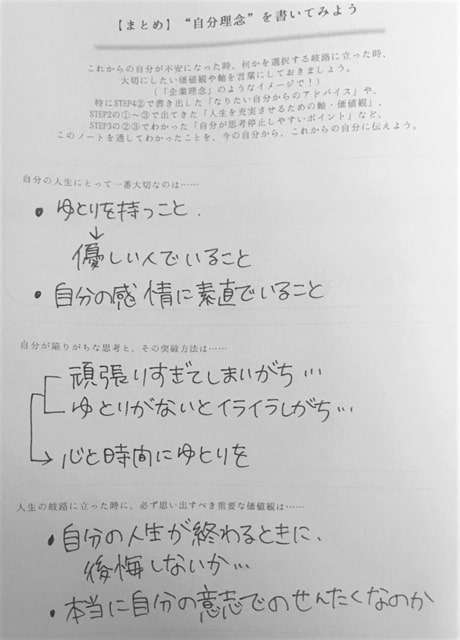 【まとめ】“自分理念”を書いてみよう
これからの自分が不安になった時、何かを選択する岐路に立った時、
大切にしたい価値観や軸を言葉にしておきましょう。
(「企業理念」のようなイメージで！)
特にSTEP4②で書き出した「なりたい自分からのアドバイス」や、
STEP2の①～③で出てきた「人生を充実させるための軸・価値観」、
STEP3の②③でわかった「自分が思考停止しやすいポイント」など、
このノートを通してわかったことを、今の自分から、これからの自分に伝えよう。
自分の人生にとって一番大切なのは……
・ゆとりを持つこと.
↓
優しい人でいること
・自分の感情に素直でいること
自分が陥りがちな思考と、その突破方法は……
頑張りすぎてしまいがち…
ゆとりがないとイライラしがち…
→心と時間にゆとりを
人生の岐路に立った時に、必ず思い出すべき重要な価値観は……
・自分の人生が終わるときに、
後悔しないか…
・本当に自分の意志でのせんたくなのか